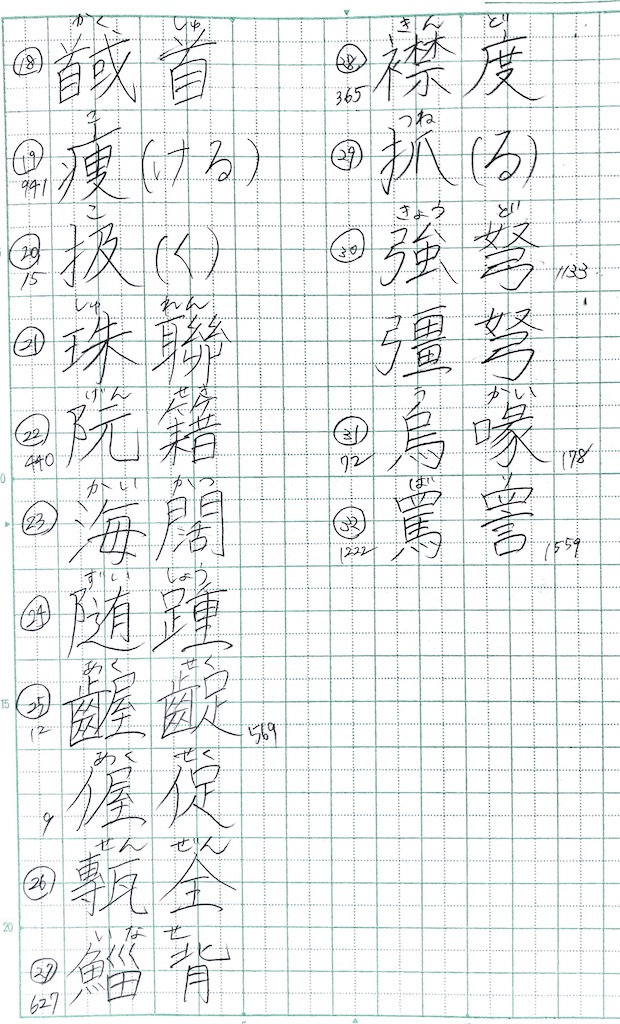 かく しゅ
⑱ 馘 首
こ
⑲ 痩(ける)
941
こ
⑳ 扱(く)
15
しゅ れん
㉑ 珠 聯
げん せき
㉒ 阮 籍
440
かい かつ
㉓ 海 闊
ずい しょう
㉔ 随 踵
あく せく
㉕ 齷 齪
12 569
あく せく
偓 促
9
せん ぜん
㉖ 甎 全
いな せ
㉗ 鯔 背
627
きん ど
㉘ 襟 度
365
つね
㉙ 抓(る)
きょう ど
㉚ 強 弩 1133
彊 弩
う かい
㉛ 烏 喙
72 178
ば り
㉜ 罵 詈
1222 1559
5
10
15
20